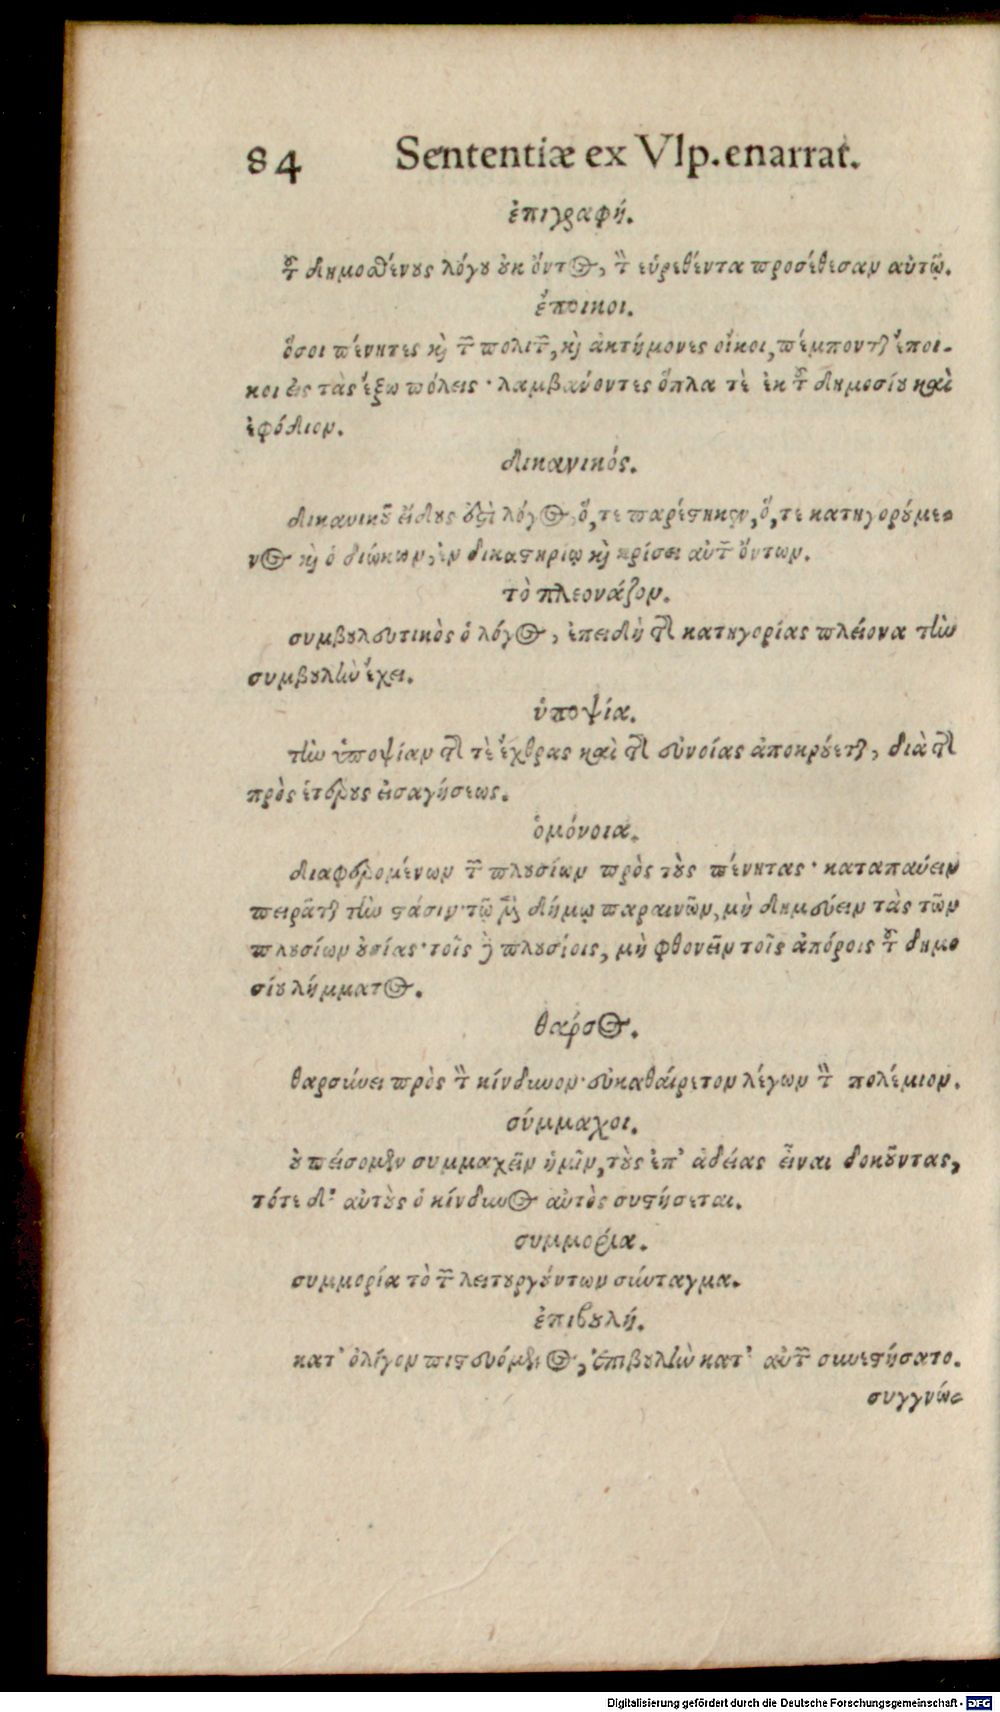 84 Sententiæ ex Vlp. enarrat.
ἐπιγραφή.
τοῦ δημοσθένους λόγου οὐκ ὄντος, τὸν εὑρεθέντα προσέθεσαν αὐτῷ.
ἔποικοι.
ὅσοι πένητες καὶ τῶν πολιτῶν, καὶ ἀκτήμονες οἶκοι, πέμπονται ἔποι-
κοι εἰς τὰς ἔξω πόλεις· λαμβάνοντες ὅπλα τὲ ἐκ τοῦ δημοσίου καὶ
ἐφόδιον.
δικανικός.
δικανικοῦ εἴδους ἐστὶ λόγος, ὅ, τε παρέστηκεν, ὅ, τε κατηγορούμε-
νος καὶ ὁ διώκων, ἐν δικαστηρίῳ καὶ κρίσει αὐτῶν ὄντων.
τὸ πλεονάζον.
συμβουλευτικὸς ὁ λόγος, ἐπειδὴ τῆς κατηγορίας πλείονα τὴν
συμβουλὴν ἔχει.
ὑποψία.
τὴν ὑποψίαν τῆς τὲ ἔχθρας καὶ τῆς εὐνοίας ἀποκρούεται, διὰ τῆς
πρὸς ἑτέρους εἰσαγήσεως.
ὁμόνοια.
διαφερομένων τῶν πλουσίων πρὸς τοὺς πένητας· καταπαύειν
πειρᾶται τὴν στάσιν· τῷ μὲν δήμῳ παραινῶν, μὴ δημεύειν τὰς τῶν
πλουσίων οὐσίας· τοῖς δὲ πλουσίοις, μὴ φθονεῖν τοῖς ἀπόροις τοῦ δημο
σίου λήμματος.
θάρσος.
θαρσύνει πρὸς τὸν κίνδυνον· εὐκαθαίρετον λέγων τὸν πολέμιον.
σύμμαχοι.
οὐ πείσομεν συμμαχεῖν ἡμῖν, τοὺς ἐπ' ἀδείας εἶναι δοκοῦντας,
τότε δ' αὐτοὺς ὁ κίνδυνος αὐτὸς συστήσεται.
συμμορία.
συμμορία τὸ τῶν λειτουργούντων σύνταγμα.
ἐπιβουλή.
κατ' ὀλίγον πιστευόμενος, ἐπιβουλὴν κατ' αὐτῶν συνεστήσατο.
συγγνώ-
Digitalisierung gefördert durch die Deutsche Forschungsgemeinschaft - DFG